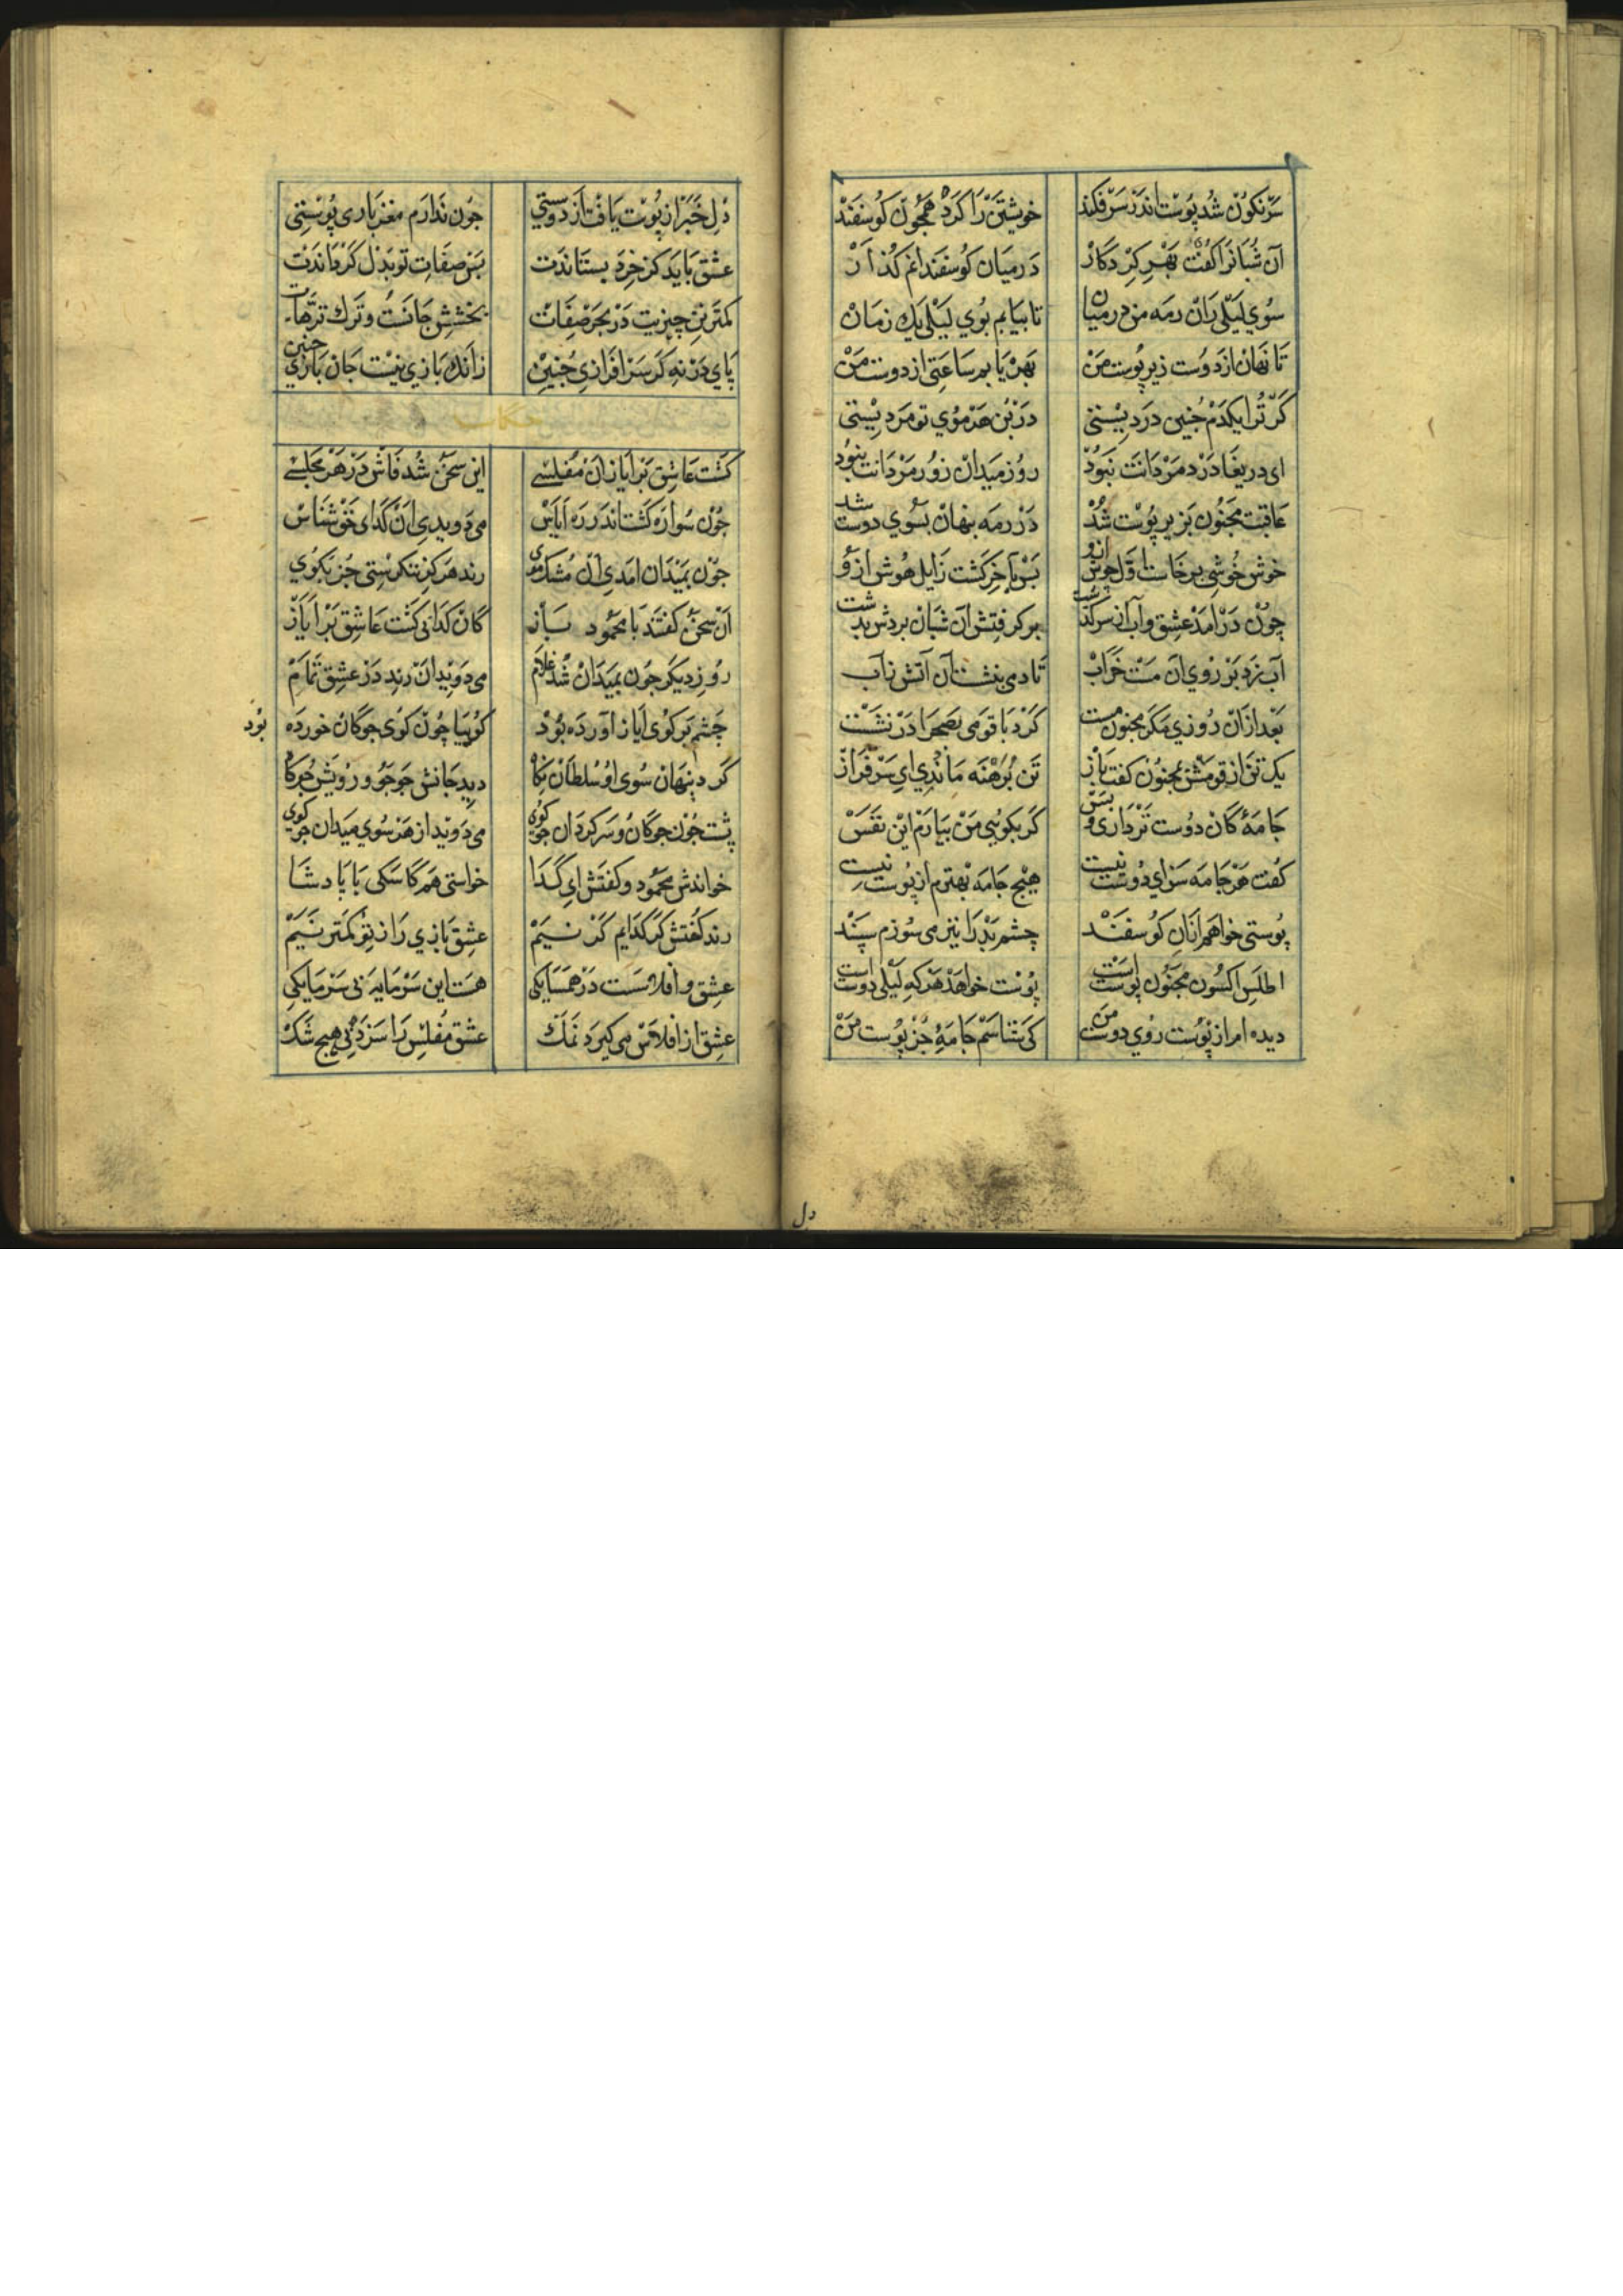 سرنکون شد پوست اندر سر فکند خویشتن را کرد همچون کوسفند
آن شبانرا کفت بهر کردکار در میان کوسفندانم کذار
سوی لیلی ران رمه من در میان تا بیابم بوی لیلی یک زمان
تا نهان از دوست زیر پوست من بهره یابم ساعتی از دوست من
کر ترا یکدم چنین دردیستی در بن هر موی تو مردیستی
ای دریغا درد مردانت نبود روز میدان زور مردانت نبود
عاقبت مجنون بزیر پوست شد در رمه پنهان بسوی دوست شد
خوش خوشی برخاست اول جوش ازو پس بآخر کشت زایل هوش ازو
چون درآمد عشق و آب از سر کذشت برکرفتش آن شبان بردش بدشت
آب زد بر روی آن مست خراب تا دمی بنشست آن آتش ز آب
بعد از آن روزی مکر مجنون مست کرد با قومی بصحرا در نشست
یک تن از قومش بمجنون کفت باز تن برهنه ماندی ای سرفراز
جامهٔ کان دوست تر داری و بس کر بکویی من بیارم این نفس
کفت هر جامه سزای دوست نیست هیچ جامه بهترم از پوست نیست
پوستی خواهم از آن کوسفند چشم بد را نیز می سوزم سپند
اطلس و اکسون مجنون پوست است پوست خواهد هر که لیلی دوست است
دیده ام از پوست روی دوست من کی شناسم جامهٔ جز پوست من
دل
دل خبر از پوست یافت از دوستی چون ندارم مغز باری پوستی
عشق باید کز خرد بستاندت پس صفات تو بدل کرداندت
کمترین چیزیت در محو صفات بخشش جانست و ترک ترهات
پای در نه کر سرافرازی چنین زانک بازی نیست جان بازی چنین
حکایت
کشت عاشق بر ایاز آن مفلسی این سخن شد فاش در هر مجلسی
چون سواره کشت اندر ره ایاس می دویدی آن کدای خوشناس
چون بمیدان آمدی آن مشک موی رند هرکز ننکرستی جز بکوی
آن سخن کفتند با محمود باز کان کدائی کشت عاشق بر ایاز
روز دیکر چون بمیدان شد غلام می دوید آن رند در عشق تمام
چشم بر کوی ایاز آورده بود کوییا چون کوی چوکان خورده بود
کرد پنهان سوی او سلطان نکاه دید جانش جو جو و رویش جو کاه
پشت چون چوکان و سرکردان چو کوی می دوید از هر سوی میدان چو کوی
خواندش محمود و کفتش ای کدا خواستی هم کاسکی با پادشا
رند کفتش کر کدایم کر نیم عشق بازی را ز تو کمتر نیم
عشق و افلاس است در همسایکی هست این سرمایه بی سرمایکی
عشق از افلاس می کیرد نمک عشق مفلس را سزد بی هیچ شک